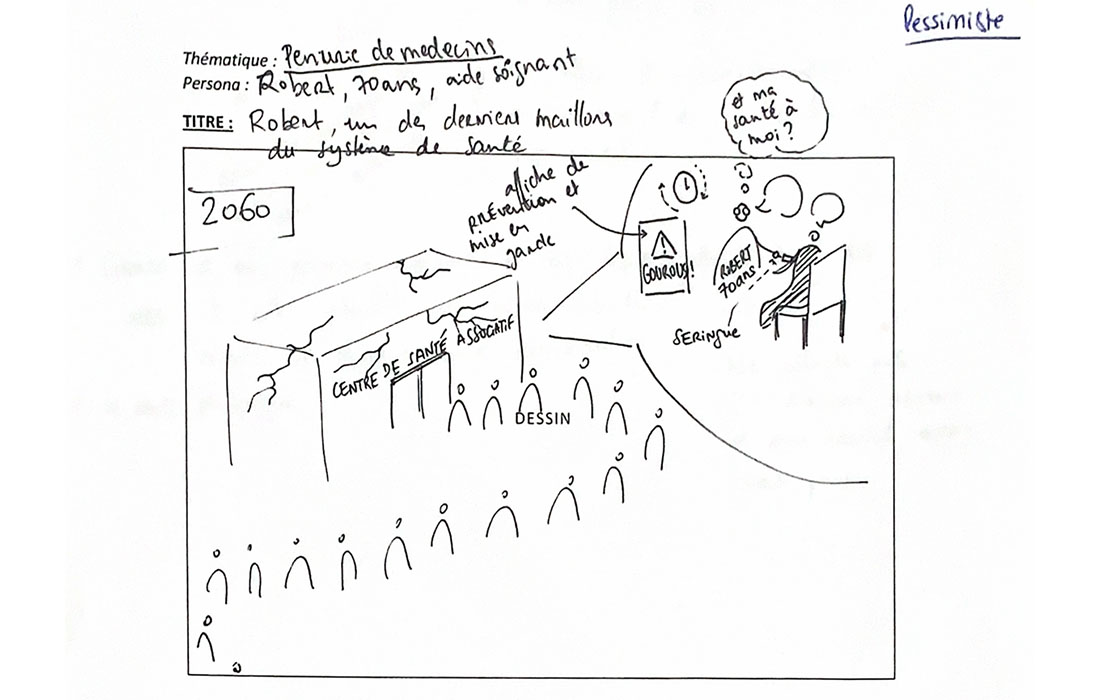 Pessimiste
Thématique : Penurie de medecins
Persona : Robert, 70ans, aide soignant
TITRE : Robert, un des derniers maillons
du système de santé
et ma
santé à
moi ?
2060
affiche de
prévention et
mise en
garde
GOUROUS!
ROBERT
70ans
SERINGUE
CENTRE DE SANTÉ ASSOCIATIF
DESSIN